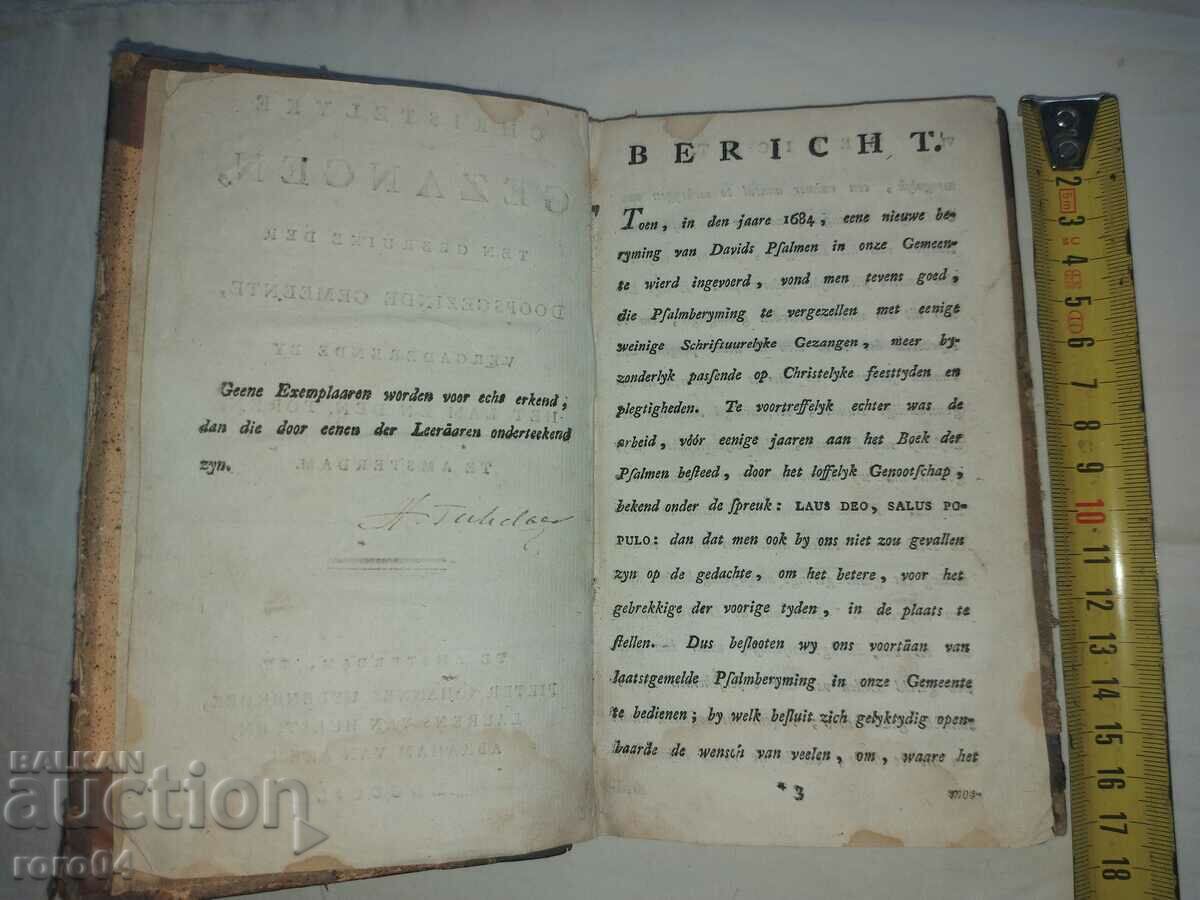 Geene Exemplaaren worden voor echt erkend,
dan die door eenen der Leeräaren onderteekend
zyn.
BERICHT.
Toen, in den jaare 1684, eene nieuwe be-
ryming van Davids Psalmen in onze Gemeen-
te wierd ingevoerd, vond men tevens goed,
die Psalmberyming te vergezellen met eenige
weinige Schriftuurelyke Gezangen, meer by-
zonderlyk passende op Christelyke feesttyden en
plegtigheden. Te voortreffelyk echter was de
arbeid, vóór eenige jaaren aan het Boek der
Psalmen besteed, door het loffelyk Genootschap,
bekend onder de spreuk: LAUS DEO, SALUS PO-
PULO: dan dat men ook by ons niet zou gevallen
zyn op de gedachte, om het betere, voor het
gebrekkige der voorige tyden, in de plaats te
stellen. Dus beslooten wy ons voortäan van
laatstgemelde Psalmberyming in onze Gemeente
te bedienen; by welk besluit zich gelyktydig open-
baarde de wensch van veelen, om, waare het
* 3
moge-
BALKAN
auction
roro04
2 3 4 5 6 7 8 9 10 11 12 13 14 15 16 17 18